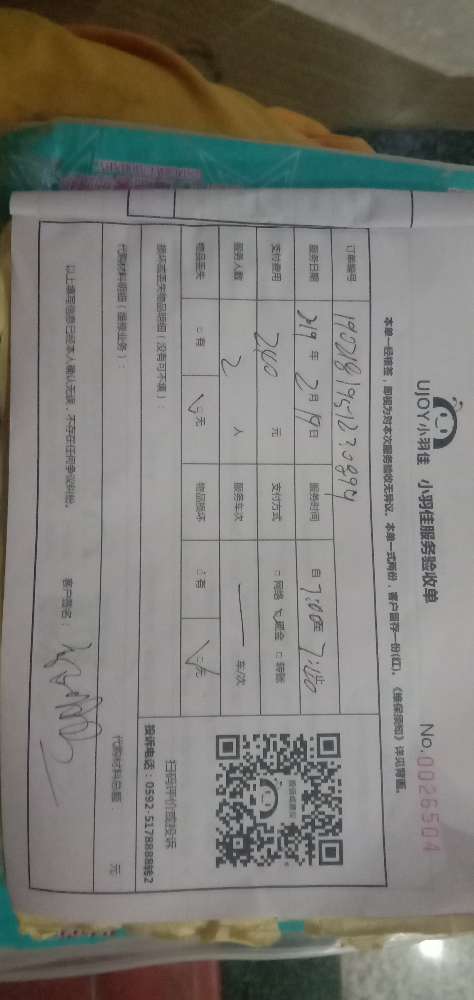 UJOY小羽佳 小羽佳服务验收单
No. 0026504
本单一经椎签，即视为对本次服务验收无异议。本单一式两份，客户留存一份(红)。《维保须知》详见背面。
订单编号
服务日期 2019 年 2 月 19 日 服务时间 自 7:00至 7:40
支付费用 240 元 支付方式 □ 网络 ☑ 现金 □ 转账
服务人数 2 人 服务车次 — 车/次
物品丢失 □ 有 ☑ 无 物品损坏 □ 有 ☑ 无
损坏或丢失物品明细（没有可不填）：
扫码评价或投诉
投诉电话：0592-5178888转2
代购材料明细（维修业务）：
代购材料总额 元
以上填写信息已经本人确认无误，不存在任何争议纠纷。 客户签名：